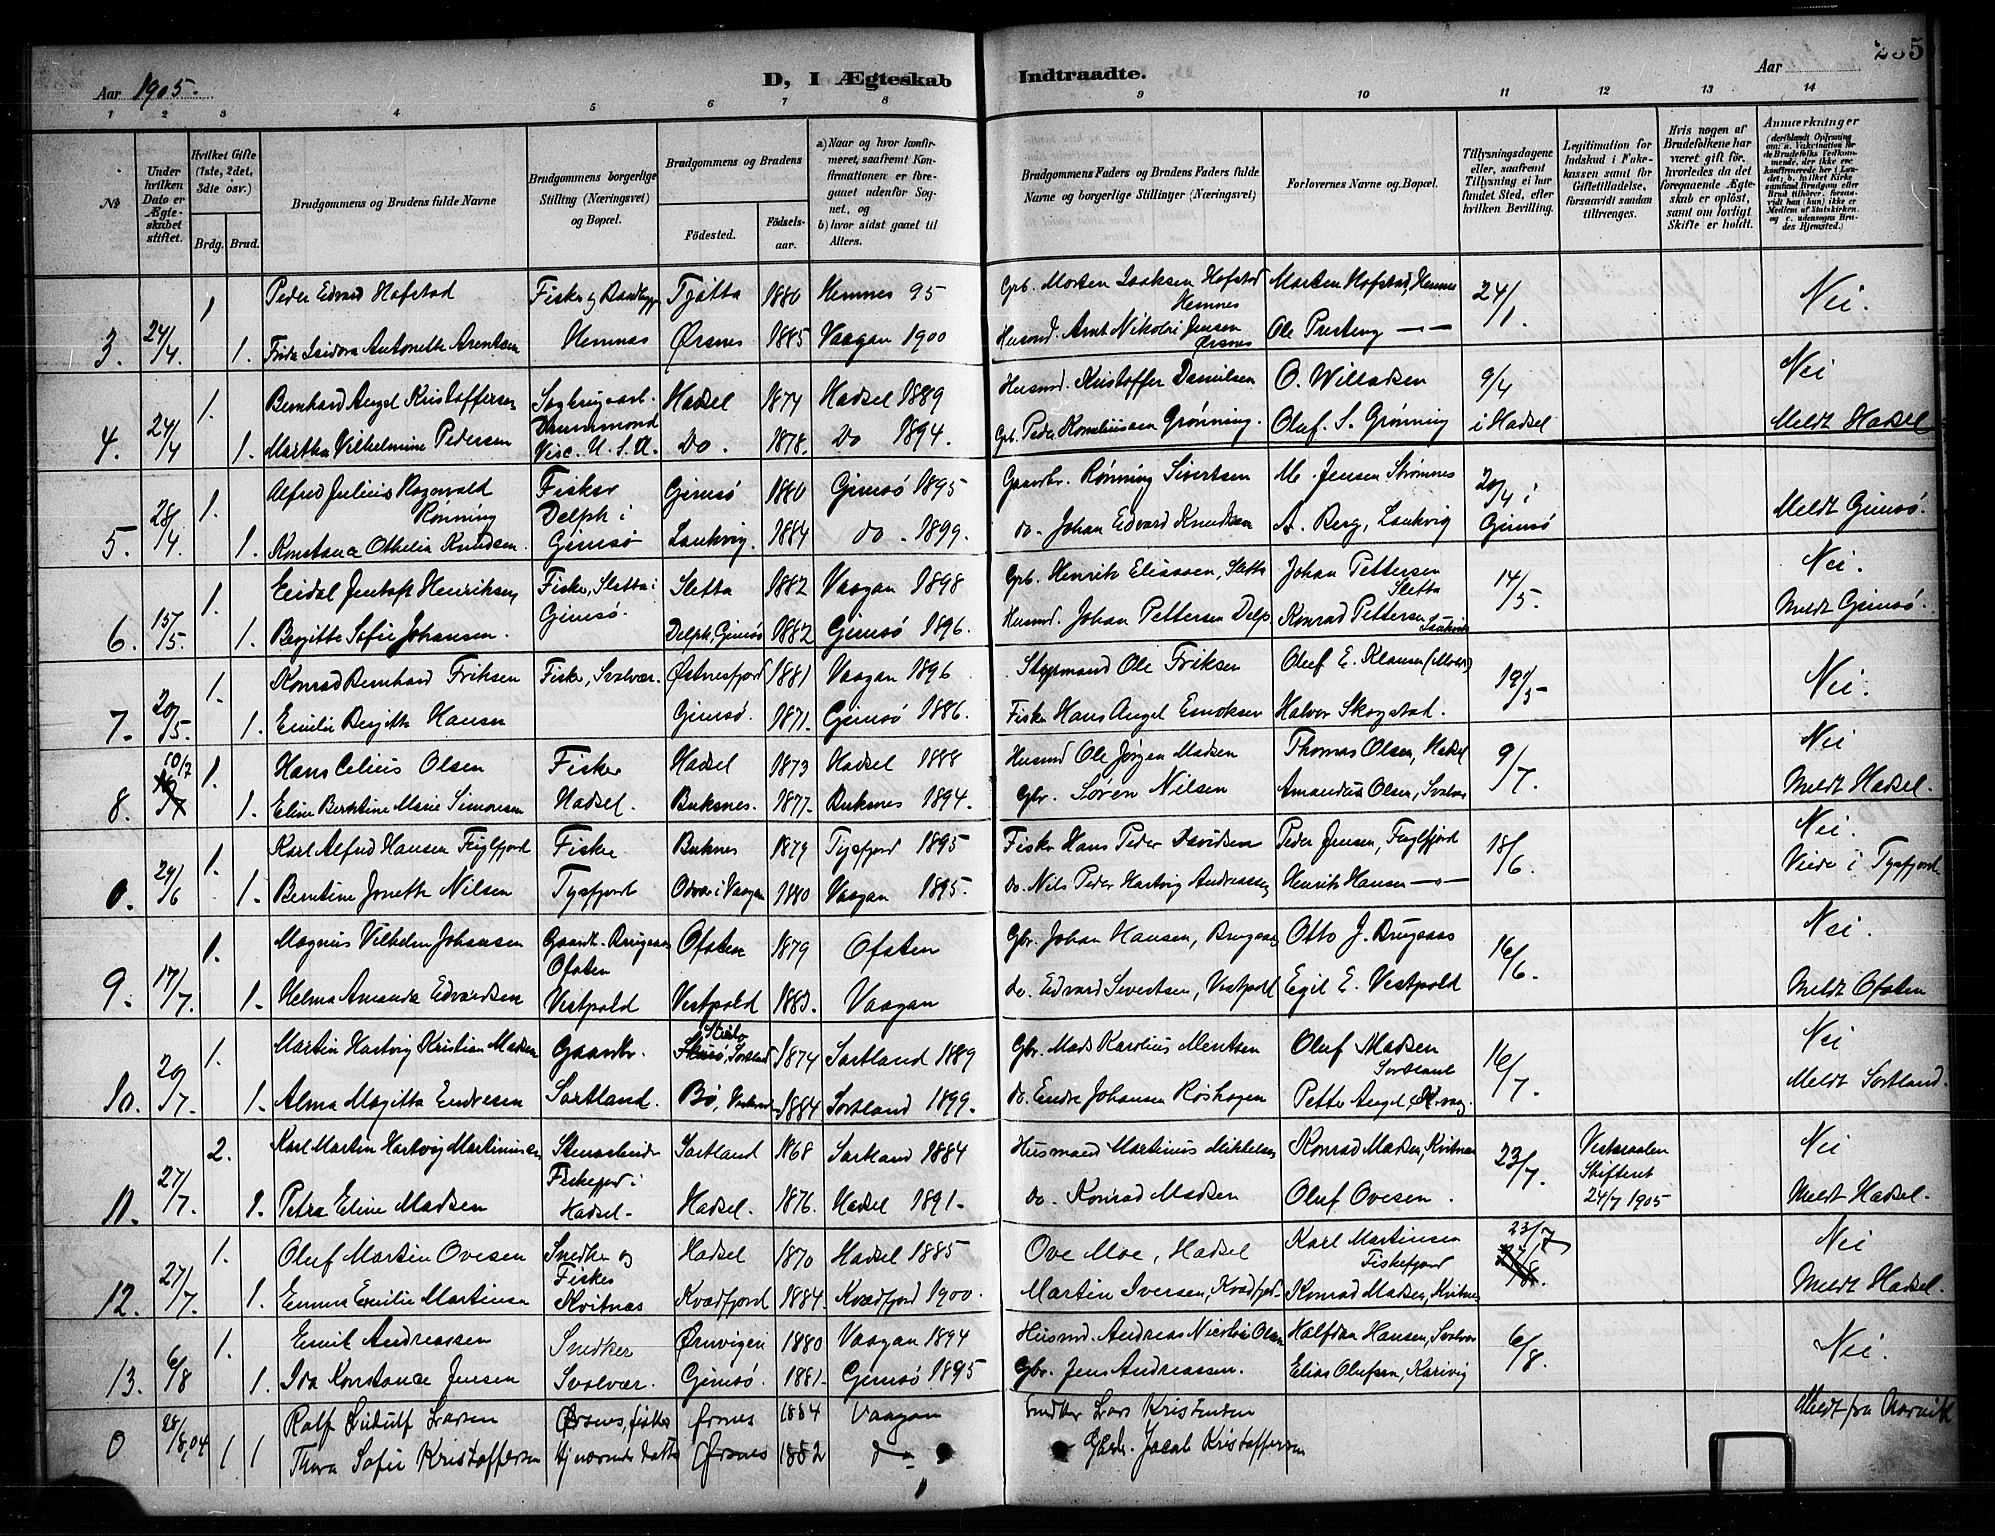 Aar 1905.
D, I Ægteskab Indtraadte.
Aar
235
1 2 3 4 5 6 7 8 9 10 11 12 13 14
No
Under hvilken Dato er Ægteskabet stiftet.
Hvilket Gifte (1ste, 2det, 3die osv.)
Brdg. Brud.
Brudgommens og Brudens fulde Navne
Brudgommens borgerlige Stilling (Næringsvei) og Bopæl.
Brudgommens og Brudens
Fødested. Fødselsaar.
a) Naar og hvor konfirmeret, saafremt Konfirmationen er foregaaet udenfor Sognet, og
b) hvor sidst gaaet til Alters.
Brudgommens Faders og Brudens Faders fulde Navne og borgerlige Stillinger (Næringsvei)
Forlovernes Navne og Bopæl.
Tillysningsdagene eller, saafremt Tillysning ei har fundet Sted, efter hvilken Bevilling.
Legitimation for Indskud i Enkekassen samt for Giftetilladelse, forsaavidt saadan tiltrænges.
Hvis nogen af Brudefolkene har været gift før, hvorledes da det foregaaende Ægteskab er opløst, samt om lovligt Skifte er holdt.
Anmærkninger (deriblandt Oplysning om: a. Vakcination for de Brudefolks Vedkommende, der ikke ere konfirmerede her i Landet; b. hvilken Kirke samtlige Brudgom efter Brud tilhører, forsaavidt han (hun) ikke er Medlem af Statskirken, og c. udensogns Brudes Hjemsted.)
3. 24/4 1 Peder Edvard Hofstad Fisker Tjøtta 1880 Hemnes 95 Gbr. Morten Isaksen Hofstad Hemnes Morten Hofstad, Hemnes 24/1. Nei.
1. Frida Isidora Antonette Arentsen Hemnes Ørsnes 1885 Vaagan 1900 Husmd. Arnt Nikolai Jensen Ørsnes Ole Presteng — —
4. 24/4 1. Bernhard Angel Kristoffersen Hadsel 1874 Hadsel 1889 Husmd. Kristoffer Danielsen O. Willadsen 9/4 Nei
1. Martha Vilhelmine Pedersen Drummond Visc. U.S.A. Do. 1878. Do 1894. Gb. Peder Korneliussen Grønning. Oluf. S. Grønning i Hadsel Meldt Hadsel
5. 28/4. 1. Alfred Julius Ragnvald Rønning Fisker Delph i Gimsø Gimsø 1880 Gimsø 1895 Gaardbr. Rønning Sivertsen M. Jensen Strømnes 20/4 i Gimsø Meldt Gimsø.
1. Konstance Othelia Knudsen. Laukvig. 1884 do. 1899. do. Johan Edvard Knudsen A. Berg, Laukvig
6. 15/5. 1. Eidal Jentoft Henriksen Fisker, Sletta i Gimsø. Sletta 1882 Vaagan 1898 Gbr. Henrik Eliassen, Sletta Johan Pettersen Sletta 14/5. Nei.
1. Bergitte Sofie Johansen. Delph, Gimsø 1882 Gimsø 1896. Husmd. Johan Pettersen Delp Konrad Pettersen Laukvik Meldt Gimsø.
7. 20/5. 1. Konrad Bernhard Eriksen Fisker, Svolvær. Østnesfjord 1881 Vaagan 1896 Ole Eriksen Oluf E. Klausen 19/5 Nei.
1. Emilie Bergitte Hansen Gimsø. 1871. Gimsø 1886. Fisker Hans Angel Enoksen Halvor Skogstad.
8. 10/7 1. Hans Celius Olsen Fisker Hadsel 1873 Hadsel 1888 Husmd Ole Jørgen Madsen Thomas Olsen, Hadsel 9/7. Nei
1. Eline Berntine Marie Simonsen Hadsel. Buksnes. 1877. Buksnes 1894. Gbr. Søren Nilsen Amandus Olsen, Svolvær Meldt Hadsel.
0. 29/6 1. Karl Alfred Hansen Fuglfjord Fisker Buksnes 1879 Tysfjord 1895 Fisker Hans Peder Davidsen Peder Jensen, Fuglfjord 18/6. Nei.
1. Berntine Jonette Nilsen Tysfjord Odvær i Vaagan 1880 Vaagan 1895. do. Nils Peder Hartvig Andreassen Henrik Hansen —"— Viede i Tysfjord
9. 17/7. 1. Magnus Vilhelm Johansen Ofoten Ofoten 1879 Ofoten Gbr. Johan Hansen, Otto J. 16/6. Nei.
1. Helma Amanda Edvardsen Vestpold Vestpold 1883. Vaagan do. Edvard Sivertsen, Vestpold Egil E. Vestpold Meldt Ofoten
10. 20/7. 1. Martin Hartvig Kristian Madsen Gaardbr. Sortland 1874 Sortland 1889 Gbr. Mads Karolius Mentsen Oluf Madsen Sortland 16/7. Nei
1. Alma Magitta Endresen Sortland. Bø, 1884 Sortland 1899. do. Endre Johansen Røshagen Petter Angel Meldt Sortland.
11. 27/7. 2. Karl Martin Hartvig Martinussen Fiskefjord i Hadsel. Sortland 1868 Sortland 1884 Husmand Martinus Mikkelsen Konrad Madsen, Kvitnes 23/7. Vesteraalen Skifteret 24/7 1905 Nei
1. Petra Eline Madsen Hadsel. 1876. Hadsel 1891. do. Konrad Madsen Oluf Ovesen. Meldt Hadsel.
12. 27/7. 1. Oluf Martin Ovesen Snedker og Fisker Kvitnes Hadsel 1870 Hadsel 1885 Ove Moe, Hadsel Karl Martinsen Fiskefjord 23/7 Nei
1. Emma Emilie Martinsen Kvædfjord 1884. Kvædfjord 1900. Martin Iversen, Kvædfjord Konrad Madsen, Kvitnes Meldt Hadsel.
13. 6/8 1. Emil Andreassen Snedker Ørnvigen 1880 Vaagan 1894 Husmd. Andreas Nicolai Olsen Halfdan Hansen, Svolvær 6/8. Nei.
1. Ida Konstance Jensen Svolvær. Gimsø. 1881. Gimsø 1895 Gbr. Jens Andreassen. Elias Olufsen, Karivig
0 28/8,04 1 Rolf Ludulf Larsen Ørsnes, fisker Ørsnes 1884 Vaagan Snedker Lars Kristensen Meldt fra Narvik
1 Thora Sofie Kristoffersen Ørsnes 1882 do Jacob Kristoffersen